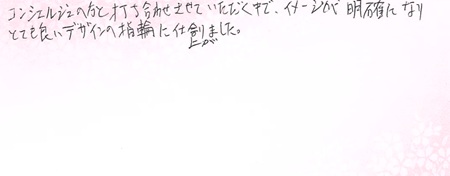 コンシェルジュの方と打ち合わせさせていただく中で、イメージが明確になり
とても良いデザインの指輪に仕上がりました。